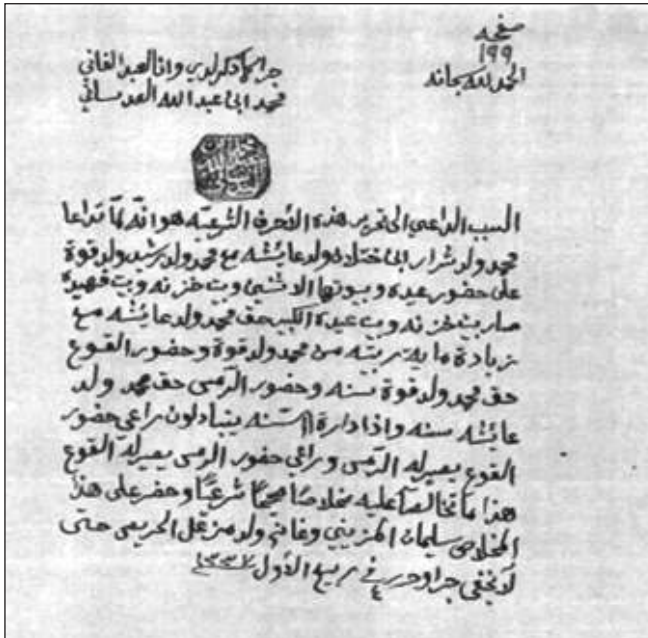 صفحه
١٩٩
الحمد لله سبحانه
جرا كما ذكر لدي وانا العبد الفاني
محمد ابن عبدالله العدساني
السبب الداعي الى تحرير هذه الأحرف الشرعيّه هو انّه لمّا تداعا
محمد ولد شرار ابن ختلان ولد عايشه مع محمد ولد رشيد ولد قوة
على حضور عبده وبيوتها الاثنين وبيت خزنه وبيت فهيده
صار بيت خزنه وبيت عبدة الكبير حق محمد ولد عايشه مع
زيادة مايه من محمد ولد قوة وحضور القوع
حق محمد ولد قوة سنه وحضور الرمى حق محمد ولد
عايشه سنه واذا دارة السّنه يتبادلون راعي حضور
القوع يصير له الرمى وراعي حضور الرمى يصير له القوع
هذا ما تخالصا عليه خلاصًا صحيحًا شرعيًا وحضر على هذا
الخلاص سليمان المزيني وغانم ولد الحريص حتى
لا يخفى جرا وحرر في ربيع الأول